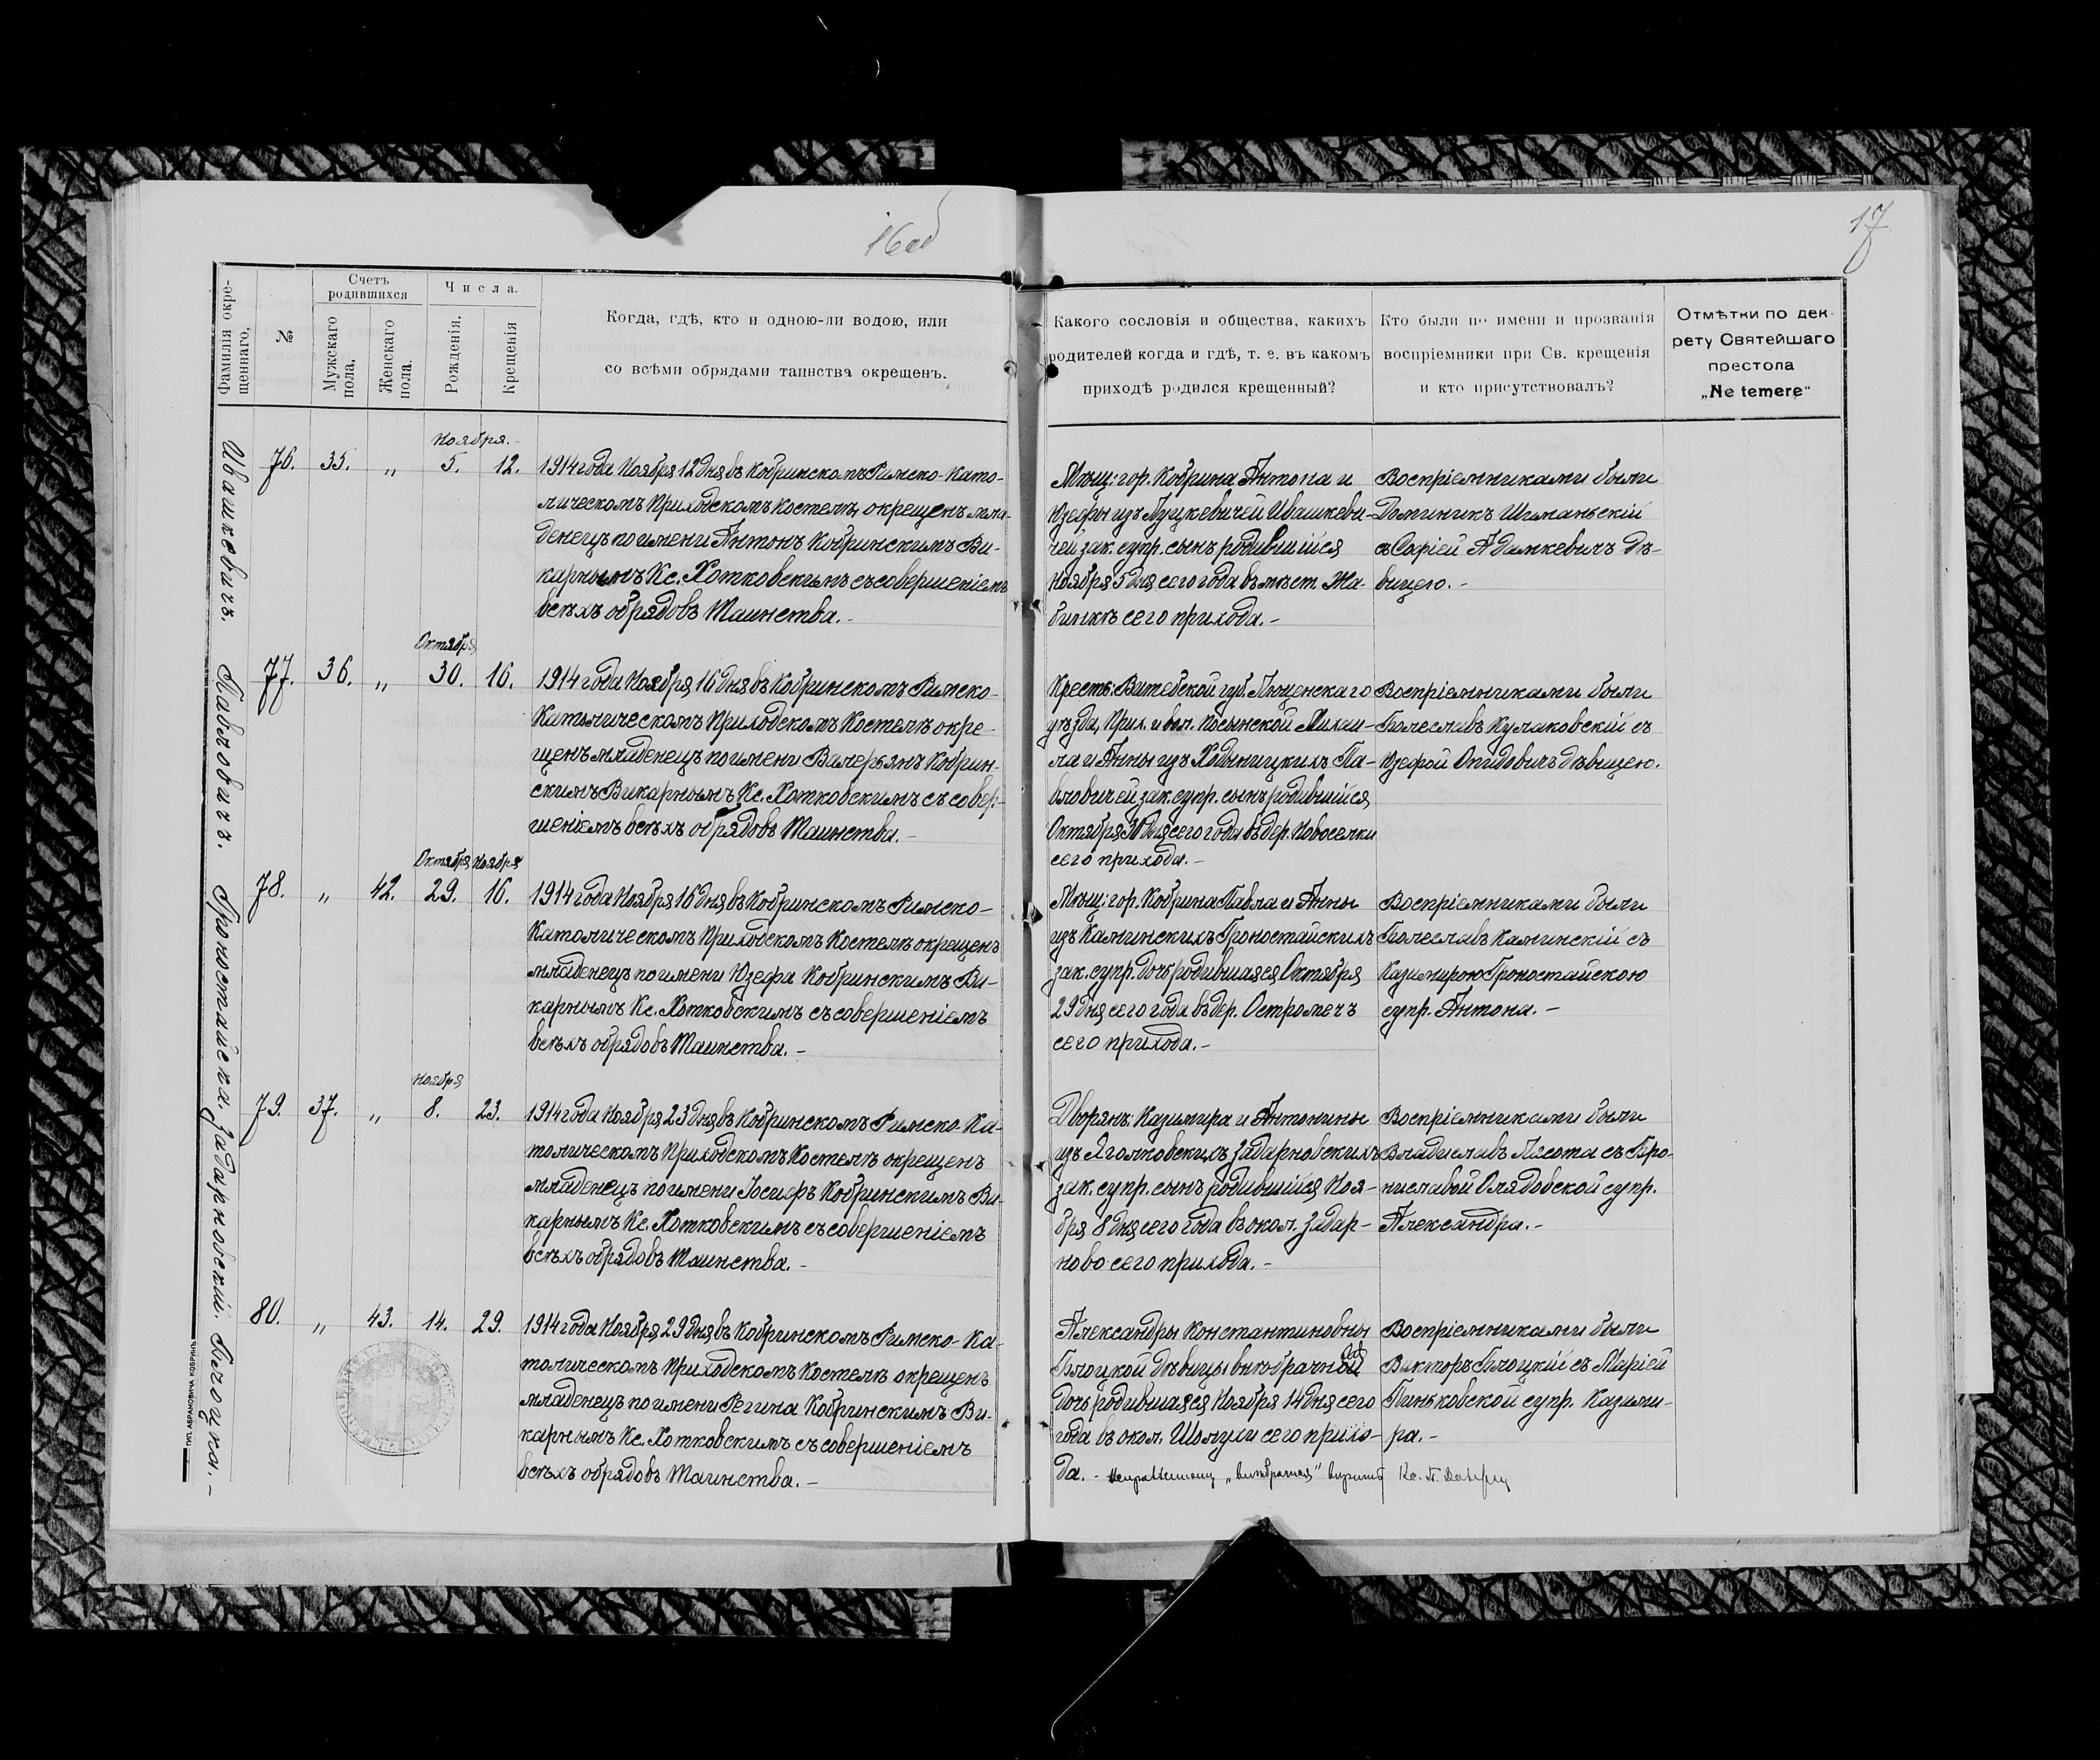 16об
17
Фамилія окре-
щеннаго.
№
Счетъ
родившихся
Мужскаго
пола.
Женскаго
пола.
Числа.
Рожденія.
Крещенія
Когда, гдѣ, кто и одною-ли водою, или
со всѣми обрядами таинства окрещенъ.
Какого сословія и общества, какихъ
родителей когда и гдѣ, т. е. въ какомъ
приходѣ родился крещенный?
Кто были по имени и прозванія
воспріемники при Св. крещенія
и кто присутствовалъ?
Отмѣтки по дек-
рету Святейшаго
престола
„Ne temere“
Ивашкевичъ.
Ноября.-
76. 35. „ 5. 12.
1914 года Ноября 12 дня въ Кобринскомъ Римско-Като-
лическомъ Приходскомъ Костелѣ окрещенъ мла-
денецъ по имени Антонъ Кобринскимъ Ви-
карнымъ Кс. Хотковскимъ съ совершеніемъ
всѣхъ обрядовъ Таинства.-
Мѣщ: гор. Кобрина Антона и
Юзефы изъ Луцкевичей Ивашкеви-
чей зак. супр. сынъ родившійся
Ноября 5 дня сего года въ мѣст. Жа-
бинкѣ сего прихода.-
Воспріемниками были
Доминикъ Шиманьскій
съ Софіей Адамкевичъ дѣ-
вицею.-
Павловичъ.
Октября
77. 36. „ 30. 16.
1914 года Ноября 16 дня въ Кобринскомъ Римско-
Католическомъ Приходскомъ Костелѣ окре-
щенъ младенецъ по имени Валерьянъ Кобрин-
скимъ Викарнымъ Кс. Хотковскимъ съ совер-
шеніемъ всѣхъ обрядовъ Таинства.-
Крест: Витебской губ. Люценскаго
уѣзда, Прих. и вол. Посынской Михаи-
ла и Анны изъ Ходыницкихъ Па-
вловичей зак. супр. сынъ родившійся
Октября 30 дня сего года въ дер. Новоселки
сего прихода.-
Воспріемниками были
Болеславъ Кулаковскій съ
Юзефой Опидовичъ дѣвицею.
Гроностайска.
Октября Ноября
78. „ 42. 29. 16.
1914 года Ноября 16 дня въ Кобринскомъ Римско-
Католическомъ Приходскомъ Костелѣ окрещенъ
младенецъ по имени Юзефа Кобринскимъ Ви-
карнымъ Кс. Хотковскимъ съ совершеніемъ
всѣхъ обрядовъ Таинства.-
Мѣщ: гор. Кобрина Павла и Анны
изъ Калинскихъ Гроностайскихъ
зак. супр. дочь родившаяся Октября
29 дня сего года въ дер. Остромечъ
сего прихода.-
Воспріемниками были
Болеславъ Калинскій съ
Казимирою Гроностайскою
супр. Антона.-
Задарновскій.
Ноября
79. 37. „ 8. 23.
1914 года Ноября 23 дня въ Кобринскомъ Римско-Ка-
толическомъ Приходскомъ Костелѣ окрещенъ
младенецъ по имени Іосифъ Кобринскимъ Ви-
карнымъ Кс. Хотковскимъ съ совершеніемъ
всѣхъ обрядовъ Таинства.-
Дворянъ Казимира и Антонины
изъ Яголковскихъ Задарновскихъ
зак. супр. сынъ родившійся Ноя-
бря 8 дня сего года въ окол. Задар-
ново сего прихода.-
Воспріемниками были
Владиславъ Лясота съ Бро-
ниславой Олядовской супр.
Александра.-
Бялоцка.-
80. „ 43. 14. 29.
1914 года Ноября 29 дня въ Кобринскомъ Римско-Ка-
толическомъ Приходскомъ Костелѣ окрещенъ
младенецъ по имени Регина Кобринскимъ Ви-
карнымъ Кс. Хотковскимъ съ совершеніемъ
всѣхъ обрядовъ Таинства.-
Александры Константиновны
Бялоцкой дѣвицы внѣбрачной
ая
дочь родившаяся Ноября 14 дня сего
года въ окол. Шолухи сего прихо-
да.- „внѣбрачная“
Воспріемниками были
Викторъ Бялоцкій съ Маріей
Пиньковской супр. Казими-
ра.-
Кс.
ТИП. АБРАМОВИЧА КОБРИНЪ